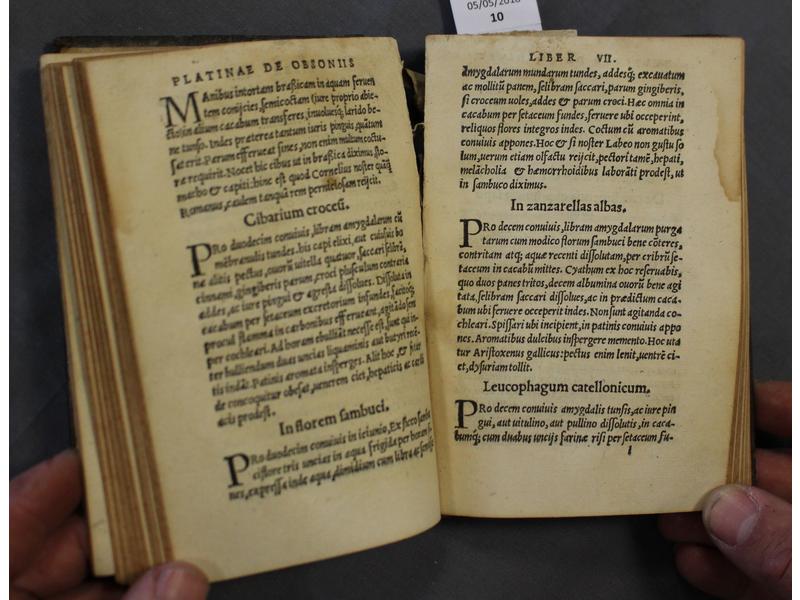 05/05/2016
10
PLATINAE DE OBSONIIS
MAnibus intortam braßicam in aquam feruen
tem conijcies, semicoctam (iure proprio abie-
cto) in alium cacabum transferes, inuolueśq; larido be-
ne tunso. Indes præterea tantum iuris pinguis, quātum
sat erit. Parum efferueat sines, non enim multum coctu-
ræ requirit. Nocet hic cibus ut in braßica diximus, sto-
macho & capiti: hinc est quod Cornelius noster quāq́
Romanus, caulem tanquā rem perniciosam reijcit.
Cibarium crocesi.
PRo duodecim conuiuis, libram amygdalarum cū
mēbranulis tundes. bis capi elixi, aut cuiusuis bo
næ alitis pectus, ouorū uitella quatuor, saccari selibrā,
cinnami, gingiberis parum, croci plusculum contraria
addes, ac iure pingui & agresta dissolues. Dissoluta in
cacabum per setaceum excretorium infundes, facitóq;
procul flamma in carbonibus efferueant, agitādo sem
per cochleari. Ad horam ebulliāt necesse est, sunt qui in-
ter bulliendum duas uncias liquaminis aut butyri recē-
tis indāt. Patinis aromata insperges. Alit hoc, & iecur
de concoquitur obesat, uenerem ciet, hepaticis ac calcu
acis prodest.
In florem sambuci.
PRo duodecim conuiuis in ieiunio, Ex sicco samba
ci flore tris uncias in aqua frigida per horam si-
nes, expressa inde aqua, dimidium cum libra ac semisse
LIBER VII.
amygdalarum mundarum tundes, addesq́; excauatum
ac mollitū panem, selibram saccari, parum gingiberis,
si croceum uoles, addes & parum croci. Hæc omnia in
cacabum per setaceum fundes, feruere ubi occeperint,
reliquos flores integros indes. Coctum cū aromatibus
conuiuis appones. Hoc & si noster Labeo non gustu so
lum, uerum etiam olfactu reijcit, pectori tamē, hepati,
melācholia & hæmorrhoidibus laborāti prodest, ut
in sambuco diximus.
In zanzarellas albas.
PRo decem conuiuis, libram amygdalarum purga
tarum cum modico florum sambuci bene cōteres,
contritam atq; aquæ recenti dissolutam, per cribrū se-
taceum in cacabū mittes. Cyathum ex hoc reseruabis,
quo duos panes tritos, decem albumina ouorū bene agi
tata, selibram saccari dissolues, ac in prædictum caca-
bum ubi feruere occeperit indes. Non sunt agitanda co-
chleari. Spissari ubi incipient, in patinis conuiuis appo
nes. Aromatibus dulcibus inspergere memento. Hoc uta
tur Aristoxenus gallicus: pectus enim lenit, uentrē ci-
et, dysuriam tollit.
Leucophagum catellonicum.
PRo decem conuiuis amygdalis tunsis, ac iure pin
gui, aut uitulino, aut pullino dissolutis, in caca-
bumq́; cum duabus uncijs farinæ risi per setaceum fu-
l